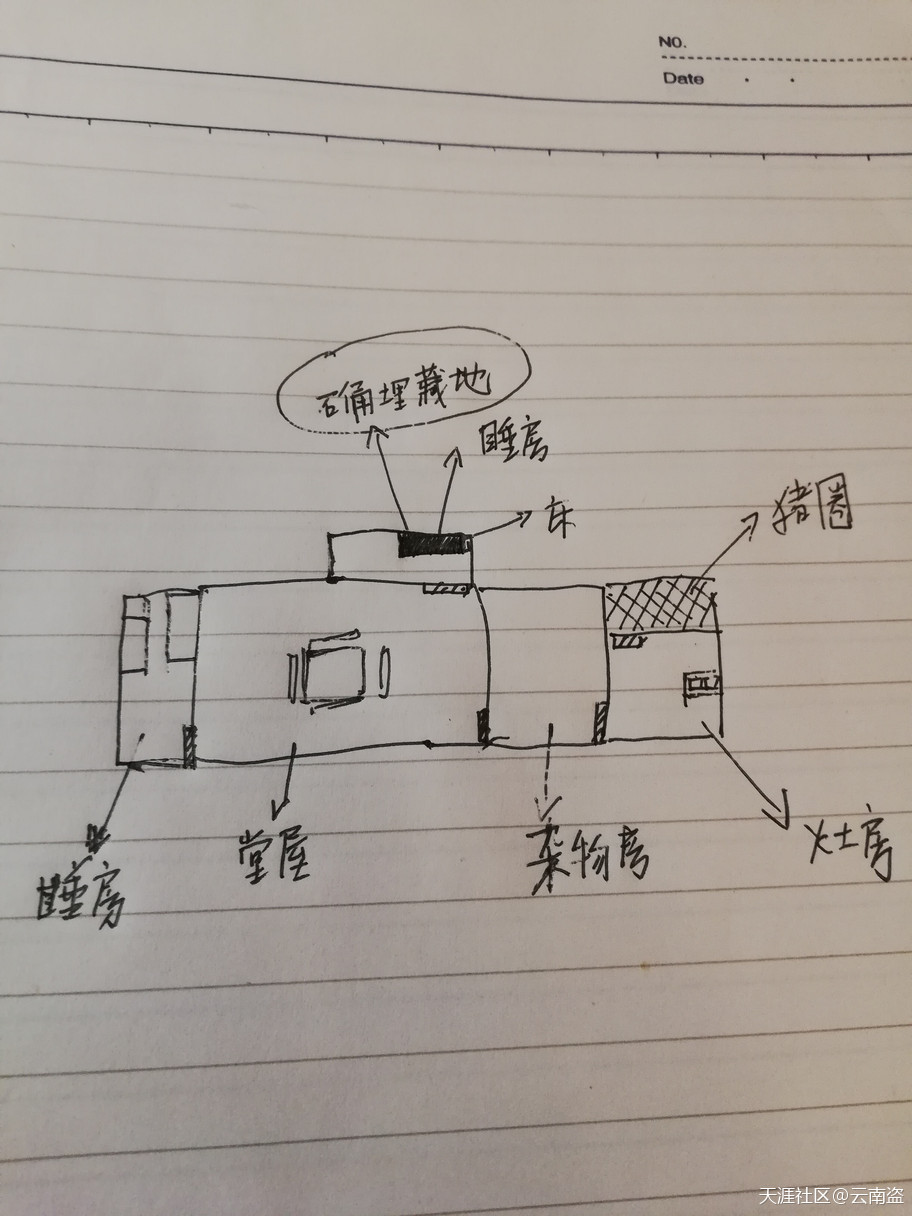 NO.
Date
石俑埋藏地
睡房
床
猪圈
睡房
堂屋
杂物房
灶房
天涯社区@云南盗